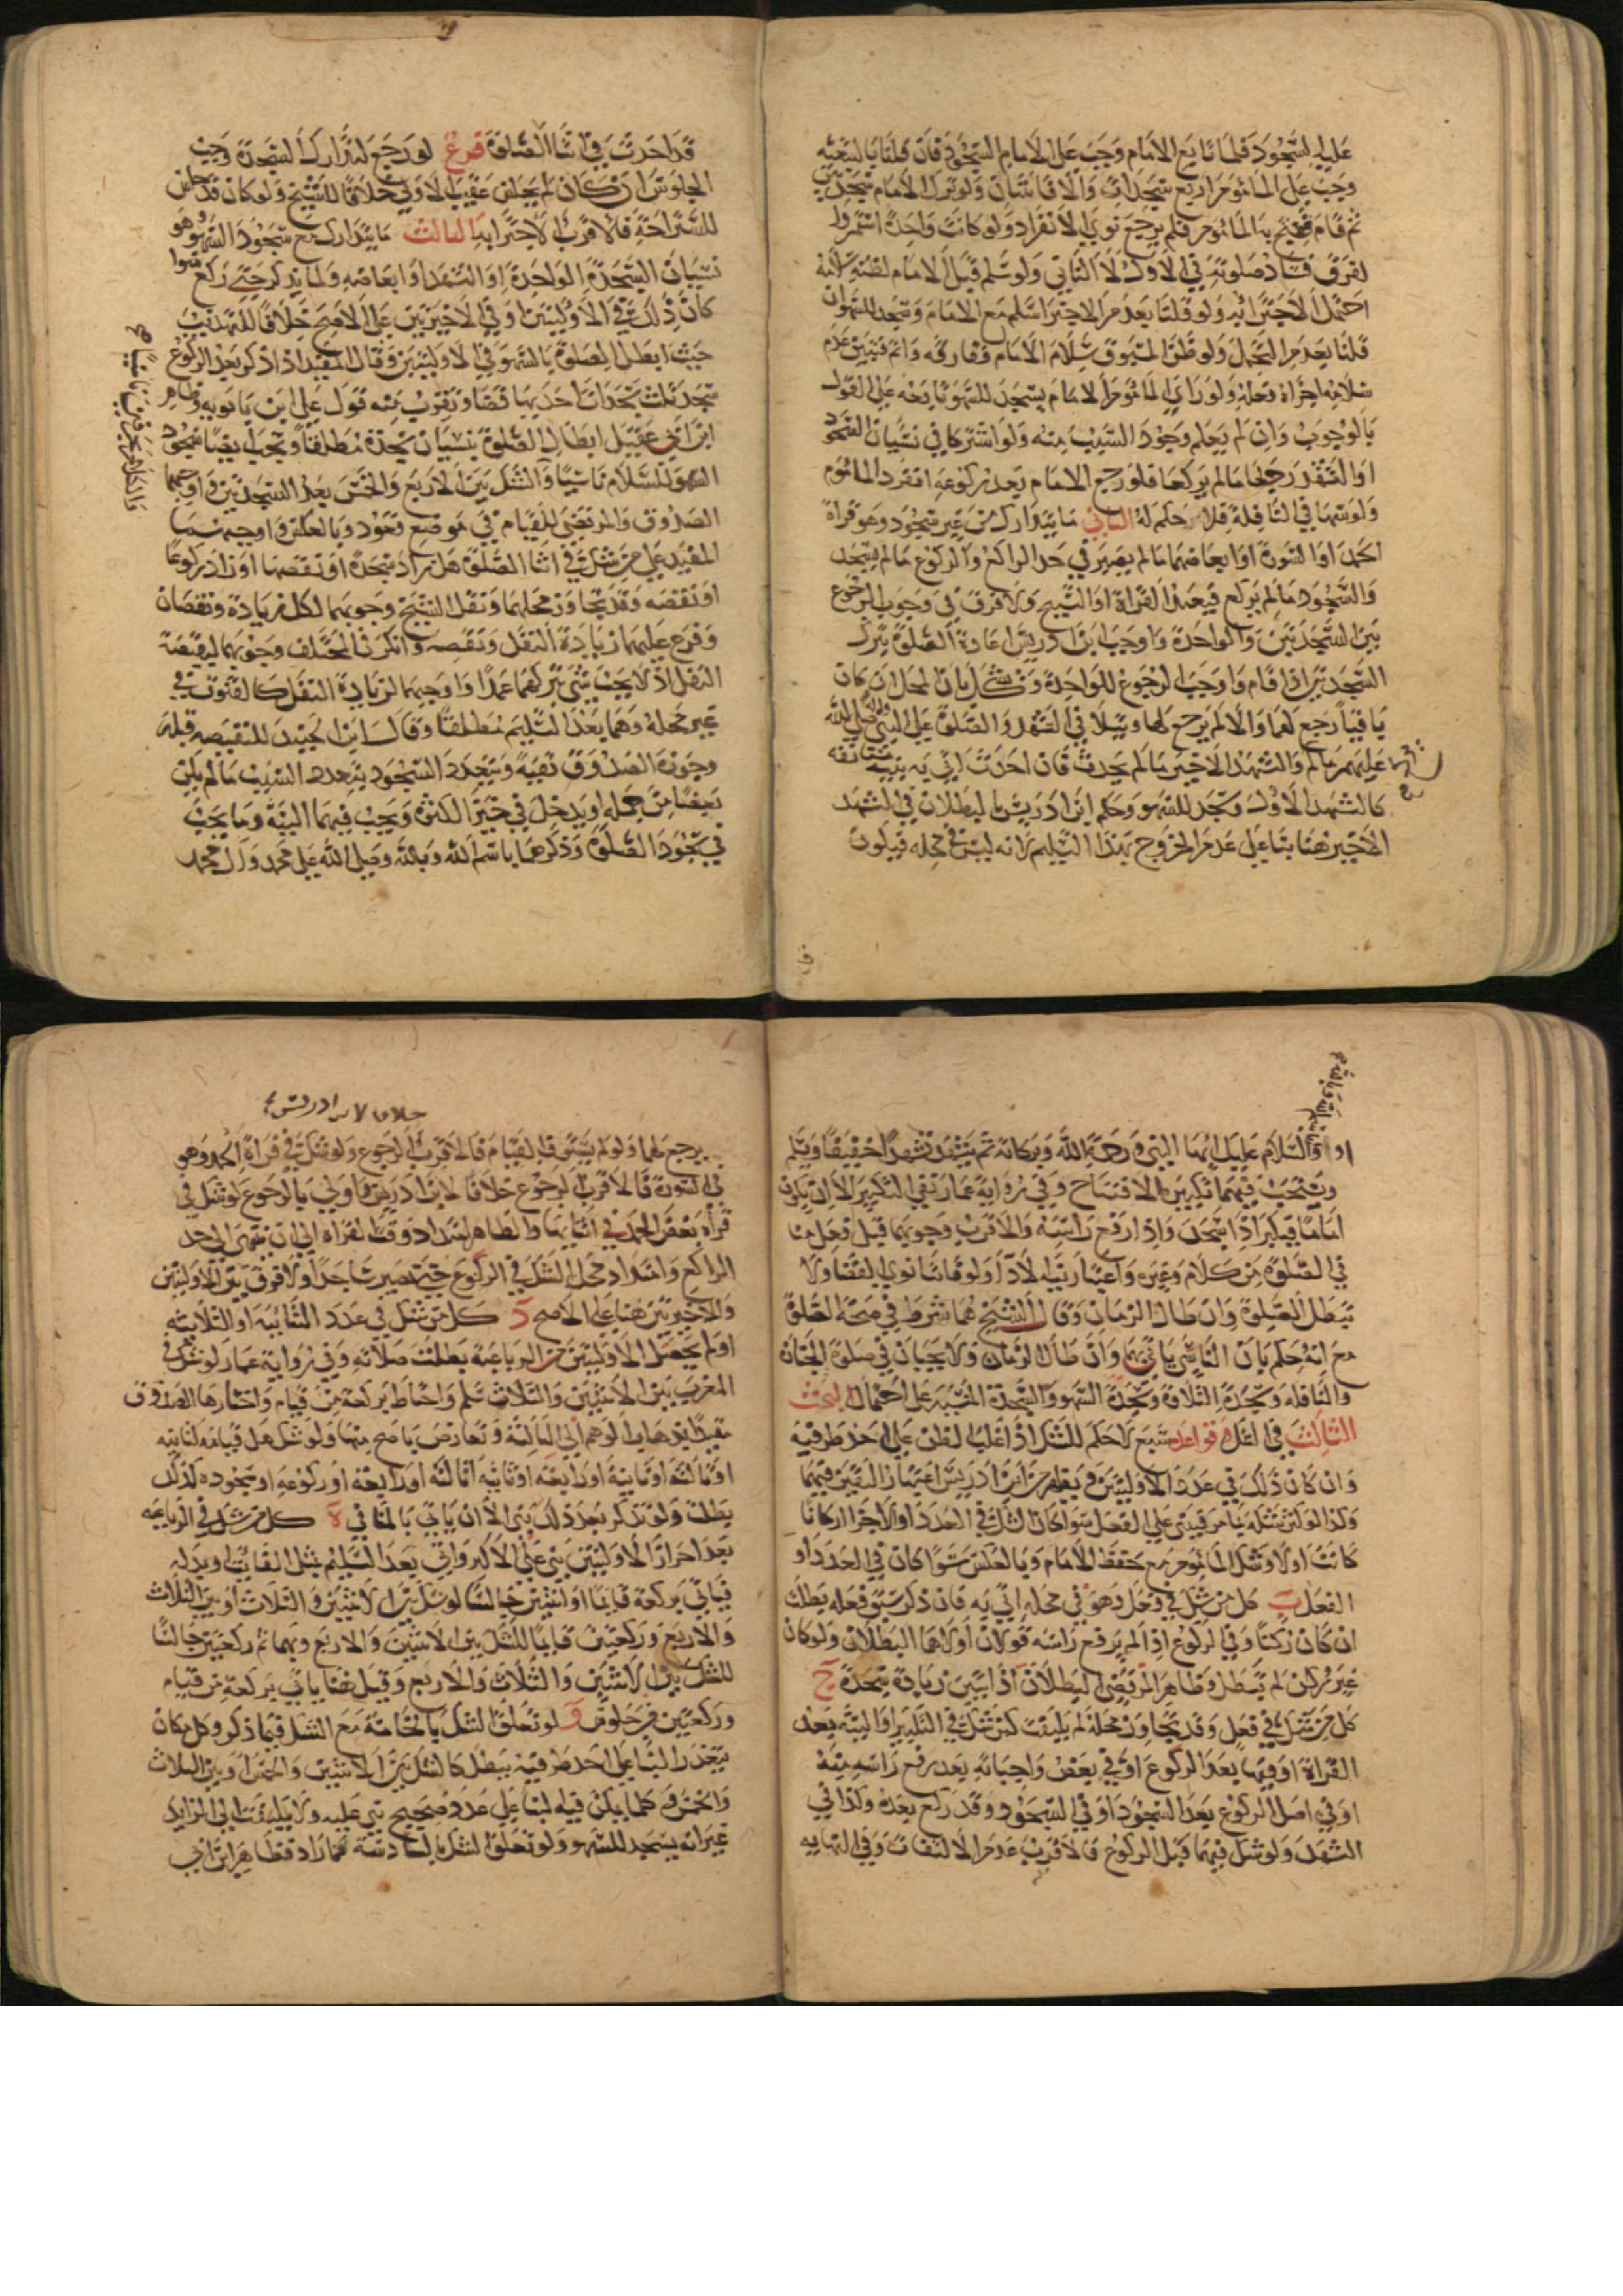 عليه السجود فلما تابع الامام وجب على الامام السجود فان قلنا بالتبعية
وجب على المأموم اربع سجدات والا فاثنتان ولو ترك الامام سجدتين
ثم قام فسبح به المأموم فلم يرجع نوى الانفراد ولو كانت واحدة استمروا
لفرق فساد صلوته في الاول لا الثاني ولو سلم قبل الامام لظنه سلامه
احتمل الاجتزا به ولو قلنا بعدم الاجتزا سلم مع الامام وسجد للسهو ان
قلنا بعدم التحمل ولو ظن المسبوق سلام الامام ففارقه واتم فتبين عدم
سلامه اجزاه فعله ولو راى المأموم الامام يسجد للسهو تابعه على القول
بالوجوب وان لم يعلم وجود السبب منه ولو اشتركا في نسيان السجود
او التشهد رجعا ما لم يركعا فلو رجع الامام بعد ركوعه انفرد المأموم
ولو سها في النافلة فلا حكم له الثاني ما يتدارك من غير سجود وهو قراة
الحمد او السورة او ابعاضهما ما لم يصر في حد الراكع والركوع ما لم يسجد
والسجود ما لم يركع فيعيد القراة او التسبيح ولا فرق في وجوب الرجوع
بين السجدتين والواحدة واوجب ابن ادريس اعادة الصلوة بترك
السجدتين اذا قام واوجب الرجوع للواحدة ويشكل بان المحل ان كان
باقيا رجع لهما والا لم يرجع لها ولا في التشهد والصلوة على النبي واله صلى الله
عليهم ما لم والتشهد الاخير ما لم يحدث فان احدث اتى به بنية مستأنفة
كالتشهد الاول وسجد للسهو وحكم ابن ادريس بالبطلان في التشهد
الاخير هنا بنا على عدم الخروج بهذا التسليم لانه ليس في محله فيكون
قد احدث في اثنا الصلوة فرع لو رجع لتدارك السجدة وجب
الجلوس ان كان لم يجلس عقيب الاولى خلافا للشيخ ولو كان قد جلس
للاستراحة فالاقرب الاجتزا به الثالث ما يتدارك مع سجود السهو وهو
نسيان السجدة الواحدة او التشهد او ابعاضه ولما يذكر حتى ركع سوا
كان ذلك في الاوليتين او في الاخيرتين على الاصح خلافا للتهذيب
حيث ابطل الصلوة بالسهو في الاوليتين وقال المفيد اذا ذكر بعد الركوع
سجد ثلث سجدات احديها قضا ويقرب منه قول علي ابن بابويه وظاهر
ابن ابي عقيل ابطال الصلوة بنسيان سجدة مطلقا ويجب ايضا سجود
السهو للسلام ناسيا والشك بين الاربع والخمس بعد السجدتين واوجبهما
الصدوق والمرتضى للقيام في موضع قعود وبالعكس واوجبهما
المفيد على من شك في اثنا الصلوة هل زاد سجدة او نقصها او زاد ركوعا
او نقصه وقد تجاوز محلهما ونقل الشيخ وجوبهما لكل زيادة ونقصان
وفرع عليهما زيادة النفل ونقصه وانكر في المختلف وجوبهما لنقيصة
النفل اذ لا يجب شي بتركهما عمدا واوجبهما لزيادة النفل كالقنوت في
غير محله وهما بعد التسليم مطلقا وقال ابن الجنيد للنقيصه قبله
وجوزه الصدوق تقيه ويتعدد السجود بتعدد السبب ما لم يكن
بعضا من جمله او يدخل في حيز الكثرة ويجب فيهما النية وما يجب
في سجود الصلوة وذكرهما باسم الله وبالله وصلى الله على محمد وال محمد
او والسلام عليك ايها النبي ورحمة الله وبركاته ثم يتشهد تشهدا خفيفا ويسلم
ويستحب فيهما تكبيرة الافتتاح وفي رواية عمار نفي التكبير الا ان يكون
اماما فيكبر اذا سجد واذا رفع راسه والاقرب وجوبهما قبل فعل منا
في الصلوة من كلام وغيره واعتبار نية الاداء ولو فاتتا نوى القضا ولا
تبطل الصلوة وان طال الزمان وقال الشيخ هما شرط في صحة الصلوة
مع انه حكم بان الناسي ياتي بهما وان طال الزمان ولا يجبان في صلوة الجنازة
والنافله وسجدة التلاوة وسجدة السهو والسجدة المنسيه على احتمال البحث
الثالث في الشك وقواعده سبع لا حكم للشك اذا غلب الظن على احد طرفيه
وان كان ذلك في عدد الاوليتين ويظهر من ابن ادريس اعتبار اليقين فيهما
وكذا لو كثر شكه فيبني على الفعل سوا كان الشك في العدد او الاجزا اركانا
كانت او لا وشك المأموم مع حفظ الامام وبالعكس سوا كان في العدد او
الفعل ب كل من شك في فعل وهو في محله اتى به فان ذكر سبق فعله بطلت
ان كان ركنا وفي الركوع اذا لم يرفع راسه قولان اولاهما البطلان ولو كان
غير ركن لم تبطل وظاهر المرتضى البطلان اذا تبين زيادة سجدة ج
كل من شك في فعل وقد تجاوز محله لم يلتفت كمن شك في التكبير او النية بعد
القراة او فيها بعد الركوع او في بعض واجباته بعد رفع راسه منه
او في اصل الركوع بعد السجود او في السجود وقد ركع بعده وكذا في
التشهد ولو شك فيهما قبل الركوع فالاقرب عدم الالتفات وفي النهايه
خلافا لابن ادريس
يرجع لهما ولو لم يستوف القيام فالاقرب الرجوع ولو شك في قراة الحمد وهو
في السورة فالاقرب الرجوع خلافا لابن ادريس واولى بالرجوع لو شك في
قراة بعض الحمد في اثنائها والظاهر امتداد وقت القراة الى ان ينتهى الى حد
الراكع وامتداد محل الشك في الركوع حتى يصير ساجدا ولا فرق بين الاوليتين
والاخيرتين هنا على الاصح د كل من شك في عدد الثنائيه او الثلاثيه
او لم يحصل الاوليتين من الرباعية بطلت صلاته وفي رواية عمار لو شك في
المغرب بين الاثنتين والثلاث سلم واحتاط بركعة من قيام واختارها الصدوق
مقيدا بذهاب الوهم الى الثالثة وتعارض باصح منها ولو شك هل قيامه لثانيه
او ثالثة او ثانية او رابعة او ثانيه او ثالثه او رابعة او ركوعه او سجوده لذلك
بطلت ولو تذكر بعد ذلك بنى الا ان ياتي بالمنافي ه كل من شك في الرباعيه
بعد احراز الاوليتين بنى على الاكثر واتى بعد التسليم بمثل الفائت او بدله
فياتي بركعة قايما او اثنتين جالسا لو شك بين الاثنتين والثلاث او بين الثلاث
والاربع وركعتين قايما للشك بين الاثنتين والاربع وبهما ثم ركعتين جالسا
للشك بين الاثنتين والثلاث والاربع وقيل هنا ياتي بركعة من قيام
وركعتين من جلوس و لو تعلق الشك بالخامسة مع الشك فيما ذكر وكل مكان
يتعذر البنا على احد طرفيه يبطل كالشك بين الاثنتين والخمس او بين الثلاث
والخمس وكلما يمكن فيه البنا على عدد صحيح بنى عليه ولا يلتفت الى الزايد
غير انه يسجد للسهو ولو تعلق الشك بالسادسة فما زاد فظاهر ابن ابي